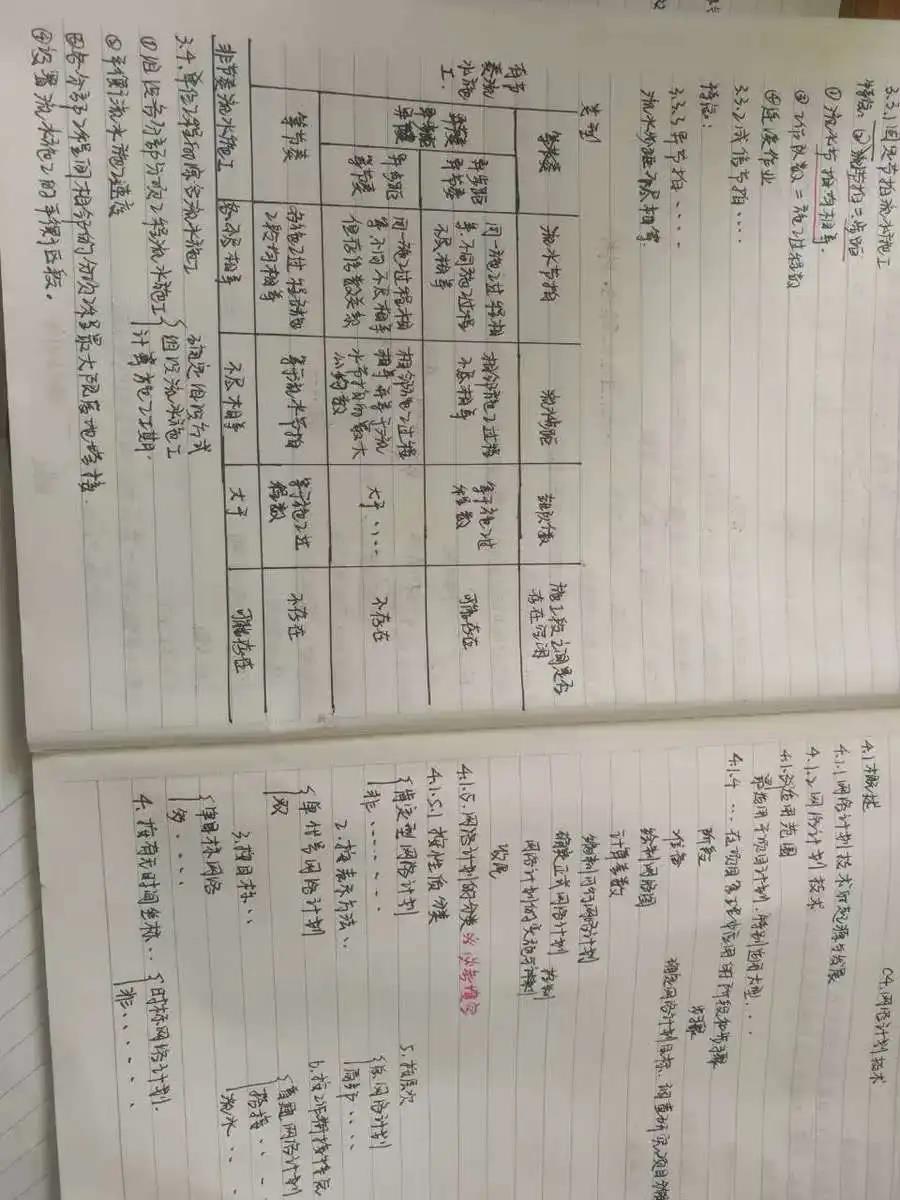 3.3.1 固定节拍流水施工
特点: ② 流水节拍=步距
① 流水节拍均相等
③ 工作队数=施工过程数
④ 连续作业
3.3.2 成倍节拍....
特点:
3.3.3 异节拍....
流水步距不尽相等
类别 流水节拍 流水步距 专业队数 施工段之间是否存在空闲
有节奏流水施工
异节奏
异步距异节奏 同一施工过程相等不同施工过程不尽相等 相邻施工过程不尽相等 等于施工过程数 可能存在
等步距异节奏 同一施工过程相等不同不尽相等但存倍数关系 相邻施工过程相等且等于流水节拍的最大公约数 大于.... 不存在
等节奏 各施工过程施工段均相等 等于流水节拍 等于施工过程数 不存在
非节奏流水施工 各不尽相等 不尽相等 大于 可能存在
3.4. 单位工程的综合流水施工
① 组织各分部分项工程流水施工 {确定组织方式
组织流水施工
计算施工工期.
② 平衡流水施工速度
③ 各个分部工程间相邻的分项工程最大限度地搭接.
④ 设置流水施工的平衡区段。
04. 网络计划技术
4.1 概述
4.1.1 网络计划技术的起源与发展
4.1.2 网络计划技术
4.1.3 适用范围
最适用于项目计划.特别适用大型....
4.1.4 ... 在项目管理中应用的阶段和步骤
阶段 步骤
准备 确定网络计划目标.调查研究.项目分解
绘制网络图
计算参数
编制可行网络计划
确定正式网络计划
网络计划的实施与控制
收尾
4.1.5. 网络计划的分类 ※必考填空
4.1.5.1 按性质分类
{肯定型网络计划
非......
2. 按表示方法..
{单代号网络计划
双
3. 按目标..
{单目标网络
多....
4. 按有无时间坐标.. {时标网络计划.
非.....
5. 按层次
{总网络计划
局部....
6. 按工作衔接特点
{普通网络计划
搭接..
流水..